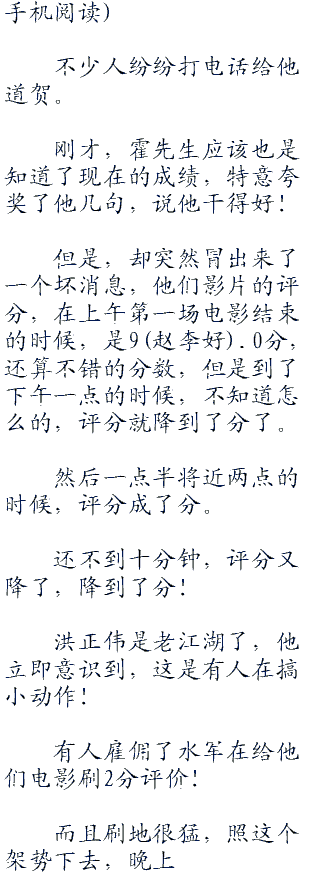 手机阅读)
不少人纷纷打电话给他
道贺。
刚才，霍先生应该也是
知道了现在的成绩，特意夸
奖了他几句，说他干得好!
但是，却突然冒出来了
一个坏消息，他们影片的评
分，在上午第一场电影结束
的时候，是9(赵李好).0分，
还算不错的分数，但是到了
下午一点的时候，不知道怎
么的，评分就降到了分了。
然后一点半将近两点的
时候，评分成了分。
还不到十分钟，评分又
降了，降到了分!
洪正伟是老江湖了，他
立即意识到，这是有人在搞
小动作!
有人雇佣了水军在给他
们电影刷2分评价!
而且刷地很猛，照这个
架势下去，晚上